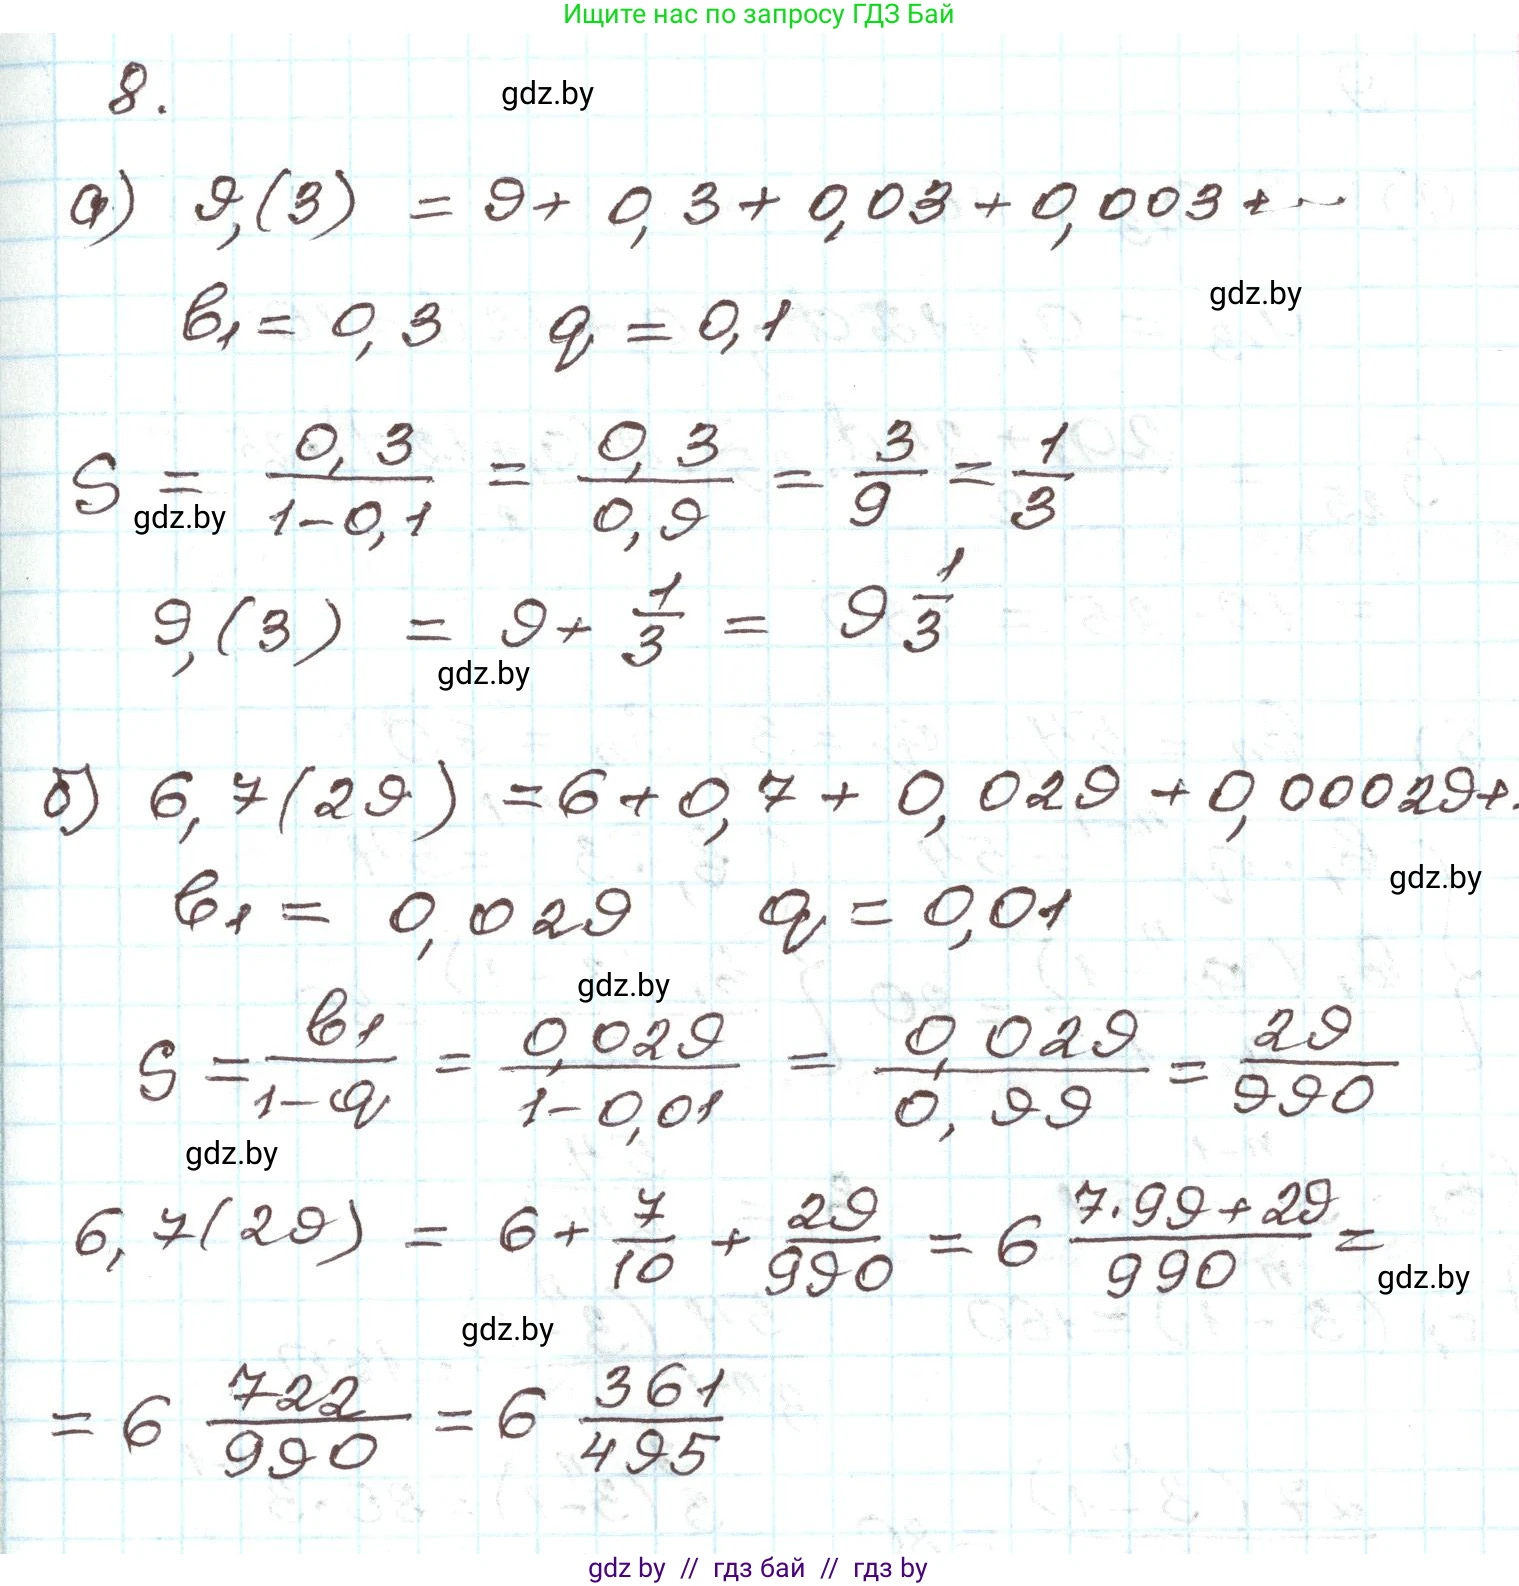 Ищите нас по запросу ГДЗ Бай
8.
gdz.by
а) 9,(3) = 9 + 0,3 + 0,03 + 0,003 + ...
gdz.by
b₁ = 0,3 q = 0,1
S = 0,3/(1-0,1) = 0,3/0,9 = 3/9 = 1/3
gdz.by
9,(3) = 9 + 1/3 = 9 1/3
gdz.by
б) 6,7(29) = 6 + 0,7 + 0,029 + 0,00029 + .
gdz.by
b₁ = 0,029 q = 0,01
gdz.by
S = b₁/(1-q) = 0,029/(1-0,01) = 0,029/0,99 = 29/990
gdz.by
6,7(29) = 6 + 7/10 + 29/990 = 6 (7·99+29)/990 =
gdz.by
gdz.by
= 6 722/990 = 6 361/495
gdz by // гдз бай // гдз by